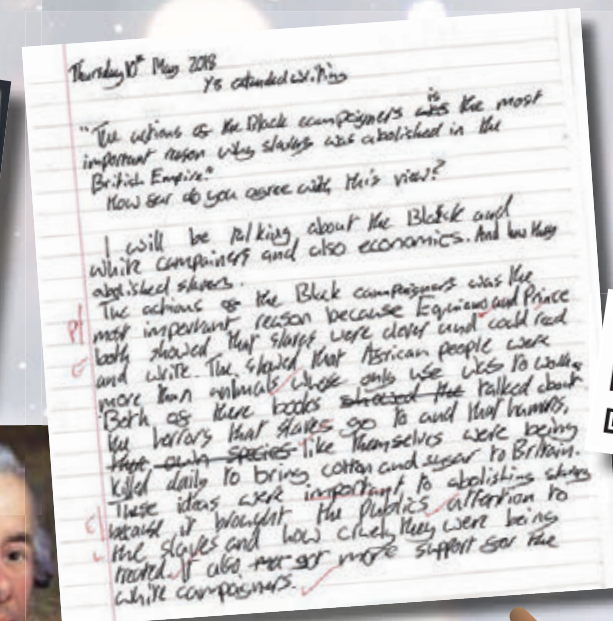 Thursday 10th May 2018
Y8 extended writing
"The actions of the Black campaigners is the most
important reason why slavery was abolished in the
British Empire."
How far do you agree with this view?
I will be talking about the Black and
white campainers and also economics. And how they
abolished slavery.
The actions of the Black campaigners was the
most important reason because Equiano and Prince
both showed that slaves were clever and could read
and write. The showed that African people were
more than animals whose only use was to work.
Both of there books showed the talked about
the horrors that slaves go to and that humans,
their own species like themselves were being
killed daily to bring cotton and sugar to Britain.
These ideas were important to abolishing slavery
because it brought the publics attention to
the slaves and how cruely they were being
treated. It also got more support for the
white campaigners.